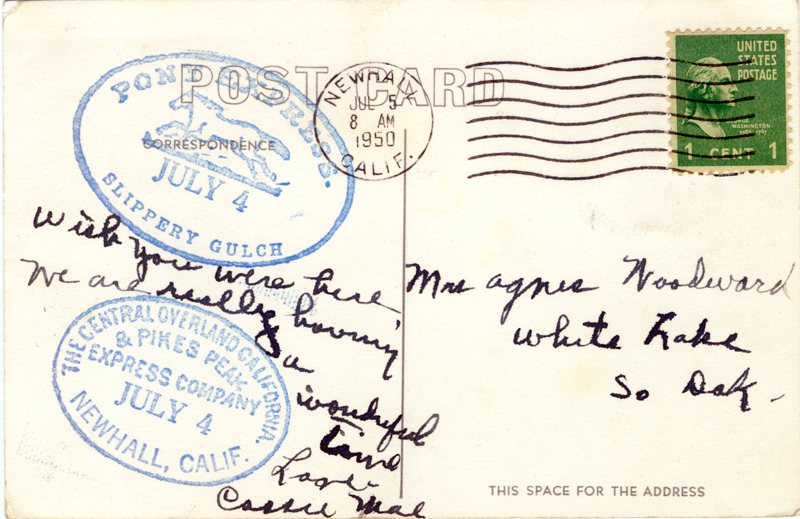 POST CARD
PONY EXPRESS.
JULY 4
SLIPPERY GULCH
CORRESPONDENCE
NEWHALL
JUL 5
8 AM
1950
CALIF.
UNITED
STATES
POSTAGE
GEORGE
WASHINGTON
1 CENT 1
Wish you were here
We are really having
a
wonderful
time
Love
Cassie Mae
THE CENTRAL OVERLAND CALIFORNIA.
& PIKES PEAK
EXPRESS COMPANY
JULY 4
NEWHALL, CALIF.
Mrs Agnes Woodward
White Lake
So Dak.
THIS SPACE FOR THE ADDRESS